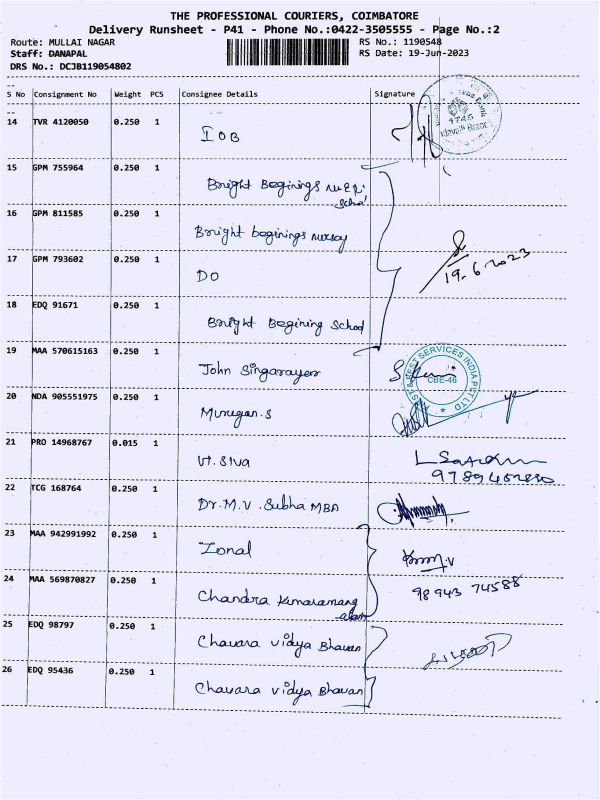 THE PROFESSIONAL COURIERS, COIMBATORE
Delivery Runsheet - P41 - Phone No.:0422-3505555 - Page No.:2
Route: MULLAI NAGAR RS No.: 1190548
Staff: DANAPAL RS Date: 19-Jun-2023
DRS No.: DCJB119054802
S No Consignment No Weight PCS Consignee Details Signature
14 TVR 4120050 0.250 1
IOB
1745
15 GPM 755964 0.250 1
Bright Beginings
School
16 GPM 811585 0.250 1
Bright beginings
17 GPM 793602 0.250 1
DO
19.6.2023
18 EDQ 91671 0.250 1
Bright Begining School
19 MAA 570615163 0.250 1
John Singarayer
SERVICES INDIA PVT LTD
CBE-46
20 NDA 905551975 0.250 1
Murugan.S
21 PRO 14968767 0.015 1
Vt. Siva
22 TCG 168764 0.250 1
Dr.M.V.Subha MBA
23 MAA 942991992 0.250 1
Zonal
24 MAA 569870827 0.250 1
98943 74588
Chandra
25 EDQ 98797 0.250 1
Chavara Vidya Bhavan
26 EDQ 95436 0.250 1
Chavara Vidya Bhavan